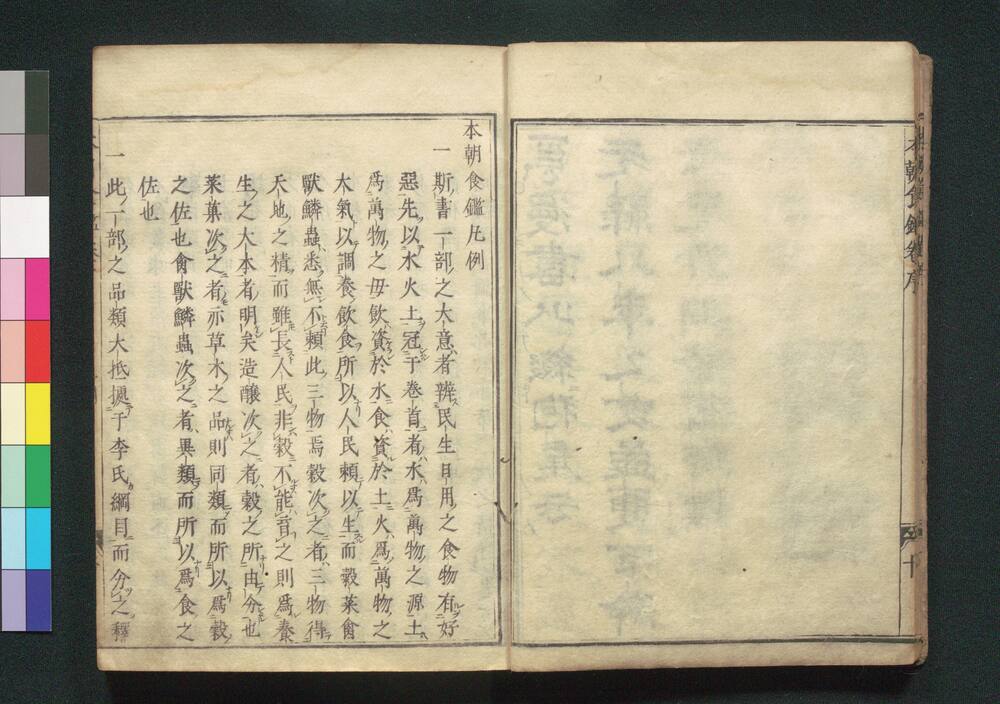 本朝食鑑卷序
十
本朝食鑑凡例
一 斯書一部之大意者辨民生日用之食物有好
惡先以水火土冠于卷首者水爲萬物之源土
爲萬物之毋飲資於水食資於土火爲萬物之
大氣以調養飲食所以人民頼以生而穀菜禽
獸鱗蟲悉無不頼此三物焉穀次之者三物得
天地之精而雖長人民非穀不能育之則爲養
生之大本者明矣造釀次之者穀之所由分也
菜菓次之者亦草木之品則同類而所以爲穀
之佐也禽獸鱗蟲次之者異類而所以爲食之
佐也
一 此一部之品類大抵據于李氏綱目而分之釋